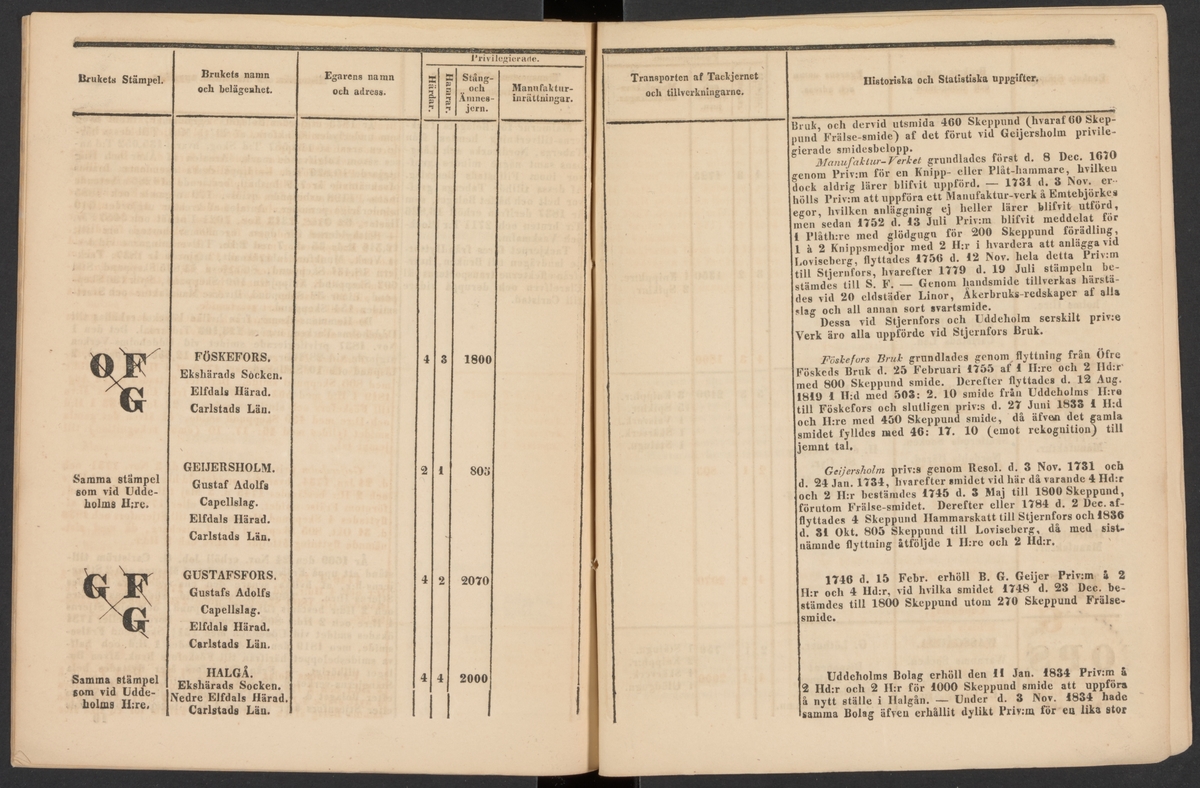 Brukets Stämpel.
Brukets namn
och belägenhet.
Egarens namn
och adress.
Privilegierade.
Härdar.
Hamrar.
Stång-
och
Ämnes-
jern.
Manufaktur-
inrättningar.
O F
G
FÖSKEFORS.
Ekshärads Socken.
Elfdals Härad.
Carlstads Län.
4 3 1800
Samma stämpel
som vid Udde-
holms H:re.
GEIJERSHOLM.
Gustaf Adolfs
Capellslag.
Elfdals Härad.
Carlstads Län.
2 1 805
G F
G
GUSTAFSFORS.
Gustafs Adolfs
Capellslag.
Elfdals Härad.
Carlstads Län.
4 2 2070
Samma stämpel
som vid Udde-
holms H:re.
HALGÅ.
Ekshärads Socken.
Nedre Elfdals Härad.
Carlstads Län.
4 4 2000
Transporten af Tackjernet
och tillverkningarne.
Historiska och Statistiska uppgifter.
Bruk, och dervid utsmida 460 Skeppund (hvaraf 60 Skep-
pund Frälse-smide) af det förut vid Geijersholm privile-
gierade smidesbelopp.
Manufaktur-Verket grundlades först d. 8 Dec. 1670
genom Priv:m för en Knipp- eller Plåt-hammare, hvilken
dock aldrig lärer blifvit uppförd. — 1731 d. 3 Nov. er-
hölls Priv:m att uppföra ett Manufaktur-verk å Emtebjörkes
egor, hvilken anläggning ej heller lärer blifvit utförd,
men sedan 1752 d. 13 Juli Priv:m blifvit meddelat för
1 Plåth:re med glödgugn för 200 Skeppund förädling,
1 à 2 Knippsmedjor med 2 H:r i hvardera att anlägga vid
Loviseberg, flyttades 1756 d. 12 Nov. hela detta Priv:m
till Stjernfors, hvarefter 1779 d. 19 Juli stämpeln be-
stämdes till S. F. — Genom handsmide tillverkas härstä-
des vid 20 eldstäder Linor, Åkerbruks-redskaper af alla
slag och all annan sort svartsmide.
Dessa vid Stjernfors och Uddeholm serskilt priv:e
Verk äro alla uppförde vid Stjernfors Bruk.
Föskefors Bruk grundlades genom flyttning från Öfre
Föskeds Bruk d. 25 Februari 1755 af 1 H:re och 2 Hd:r
med 800 Skeppund smide. Derefter flyttades d. 12 Aug.
1819 1 H:d med 503: 2. 10 smide från Uddeholms H:re
till Föskefors och slutligen priv:s d. 27 Juni 1833 1 H:d
och H:re med 450 Skeppund smide, då äfven det gamla
smidet fylldes med 46: 17. 10 (emot rekognition) till
jemnt tal.
Geijersholm priv:s genom Resol. d. 3 Nov. 1731 och
d. 24 Jan. 1734, hvarefter smidet vid här då varande 4 Hd:r
och 2 H:r bestämdes 1745 d. 3 Maj till 1800 Skeppund,
förutom Frälse-smidet. Derefter eller 1784 d. 2 Dec. af-
flyttades 4 Skeppund Hammarskatt till Stjernfors och 1836
d. 31 Okt. 805 Skeppund till Loviseberg, då med sist-
nämnde flyttning åtföljde 1 H:re och 2 Hd:r.
1746 d. 15 Febr. erhöll B. G. Geijer Priv:m å 2
H:r och 4 Hd:r, vid hvilka smidet 1748 d. 23 Dec. be-
stämdes till 1800 Skeppund utom 270 Skeppund Frälse-
smide.
Uddeholms Bolag erhöll den 11 Jan. 1834 Priv:m å
2 Hd:r och 2 H:r för 1000 Skeppund smide att uppföra
å nytt ställe i Halgån. — Under d. 3 Nov. 1834 hade
samma Bolag äfven erhållit dylikt Priv:m för en lika stor